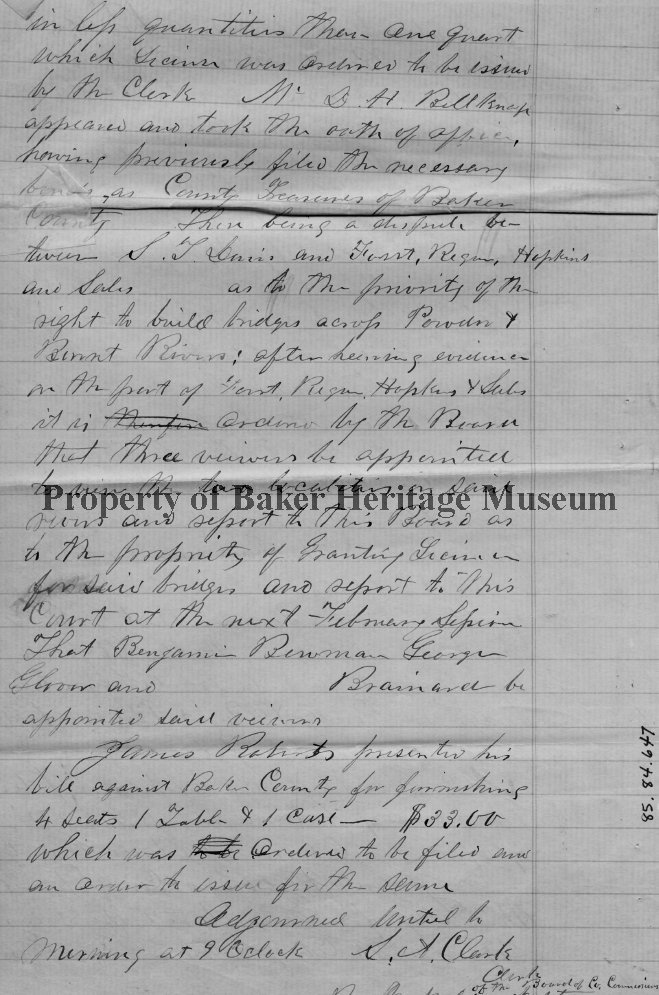 in less quantitis than one quart
which Licinse was ordered to be issued
by the Clerk Mr D. H. Bellknap
appeared and took the oath of office,
having previously filed the necessary
bonds, as County Treasurer of Baker
County There being a dispute be-
tween S. T. Davis and Forst, Regan, Hopkins
and Sales as to the priority of the
right to build bridges across Powder &
Burnt Rivers; after hearing evidence
on the part of Forst, Regan, Hopkins & Sales
it is ordered by the Board
that three viewers be appointed
to view the two localities on said
Property of Baker Heritage Museum
rivers and report to this Board as
to the propriety of Granting Licinse
for said bridges and report to this
Court at the next February Session
That Benjamin Bowman George
Glover and Brainard be
appointed said viewers
James Roberts presented his
bill against Baker County for furnishing
4 seats 1 Table & 1 Case — $33.00
which was ordered to be filed and
an order to issue for the same
Adjourned until to
morning at 9 Oclock S. A. Clark
Clerk
of the Board of Co. Commissioners
85.84.647